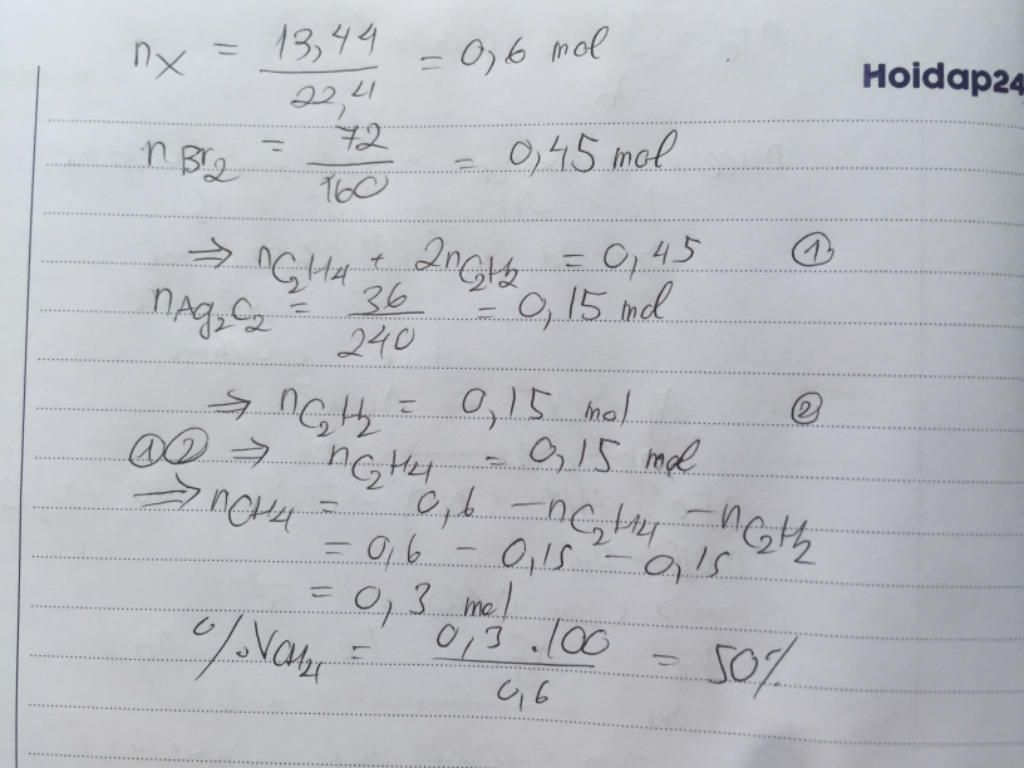 nX = 13,44 / 22,4 = 0,6 mol
Hoidap24
nBr2 = 72 / 160 = 0,45 mol
⇒ nC2H4 + 2nC2H2 = 0,45 ①
nAg2C2 = 36 / 240 = 0,15 mol
⇒ nC2H2 = 0,15 mol ②
①② ⇒ nC2H4 = 0,15 mol
⇒ nCH4 = 0,6 - nC2H4 - nC2H2
= 0,6 - 0,15 - 0,15
= 0,3 mol
%VCH4 = 0,3 . 100 / 0,6 = 50%